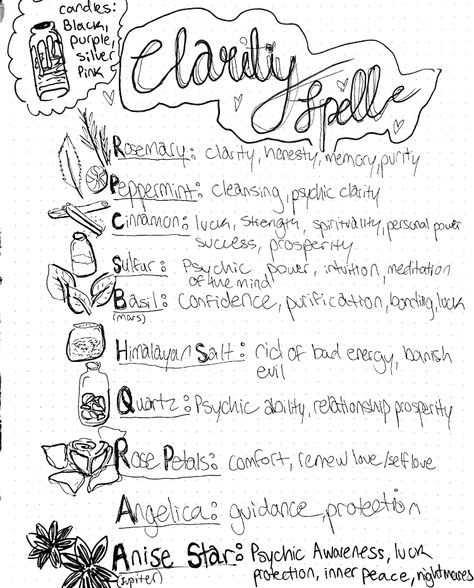 candles:
Black,
purple,
silver
Pink
Clarity
Spell
Rosemary: clarity, honesty, memory, purity
Peppermint: cleansing, psychic clarity
Cinnamon: luck, strength, spirituality, personal power
success, prosperity
Sulfur: Psychic power, intuition, meditation
of the mind
Basil: Confidence, purification, bonding, luck
(mars)
Himalayan Salt: rid of bad energy, banish
evil
Quartz: Psychic ability, relationship prosperity
Rose Petals: comfort, renew love/self love
Angelica: guidance, protection
Anise Star: Psychic Awareness, luck
(Jupiter) protection, inner peace, nightmares